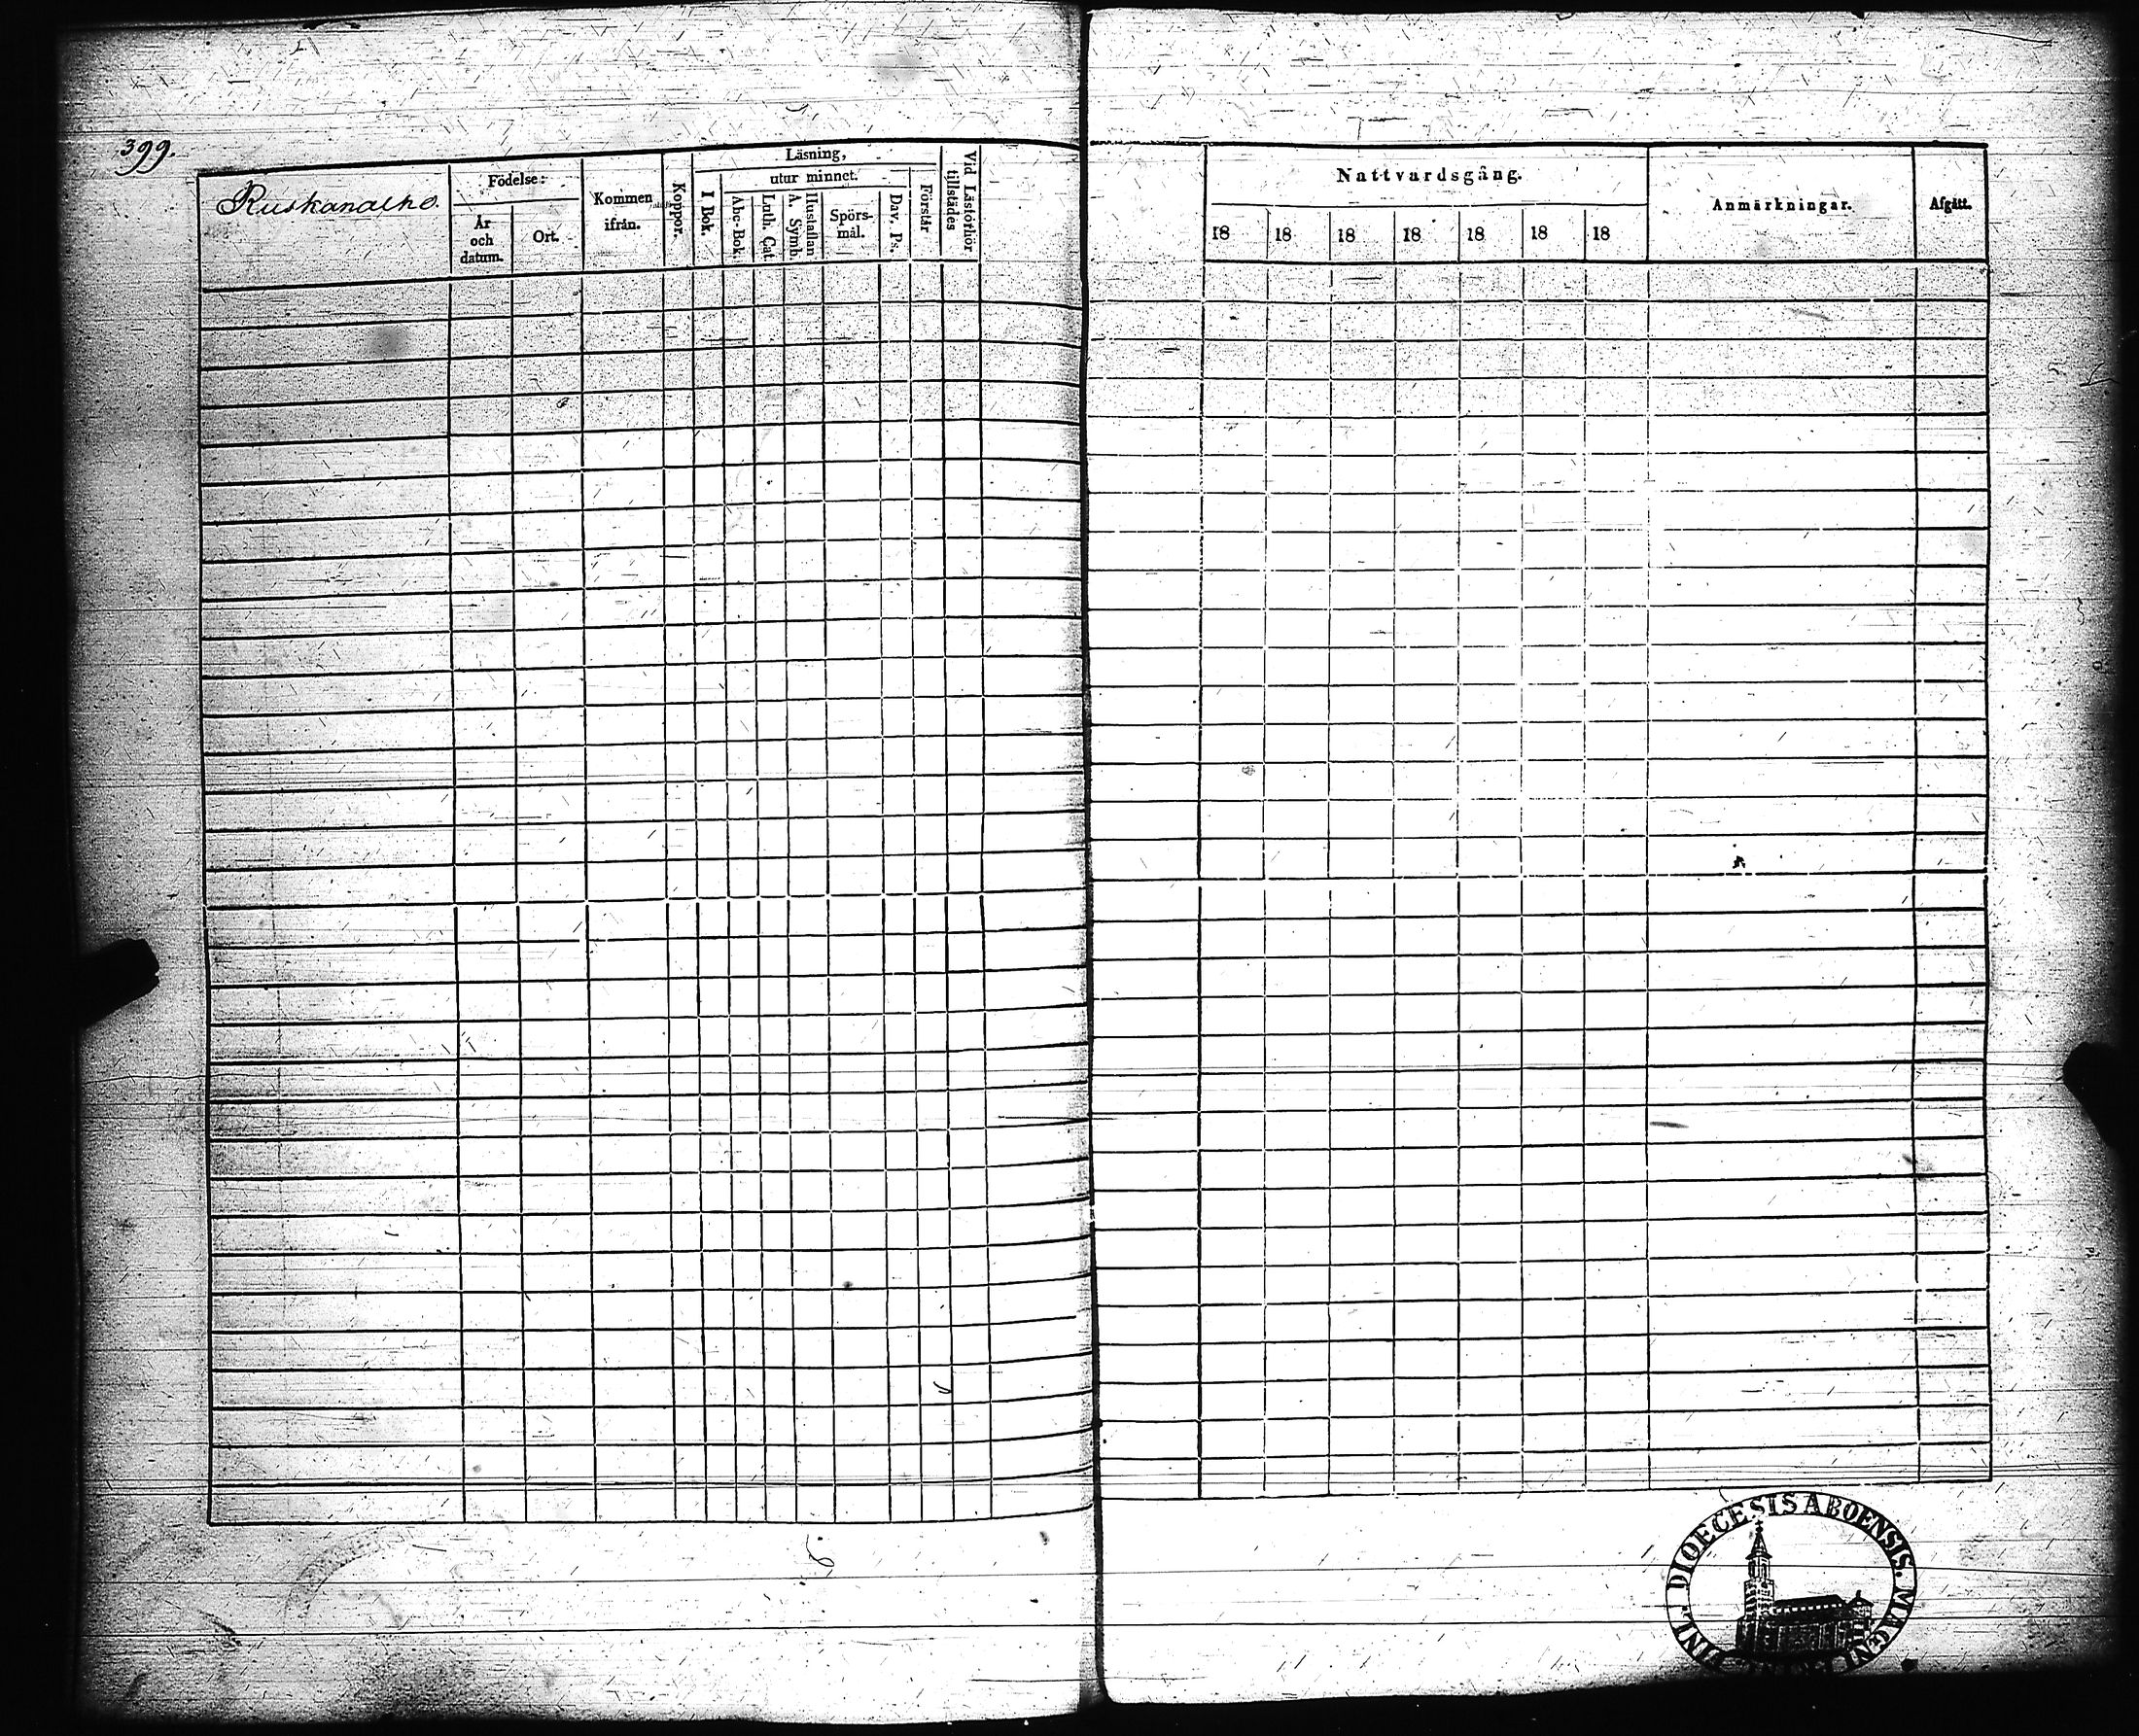 399.
Ruskanacho.
Födelse:
År och datum.
Ort.
Kommen ifrån.
Koppor.
Läsning,
I Bok.
utur minnet.
Abc-Bok.
Luth. Cat.
Hustaflan A. Symb.
Spörs-mål.
Dav. Ps.
Förstår
Vid Läsförhör tillstädes
Nattvardsgång.
18 18 18 18 18 18 18
Anmärkningar.
Afgått.
DIOECESIS ABOENSIS. MAGNI